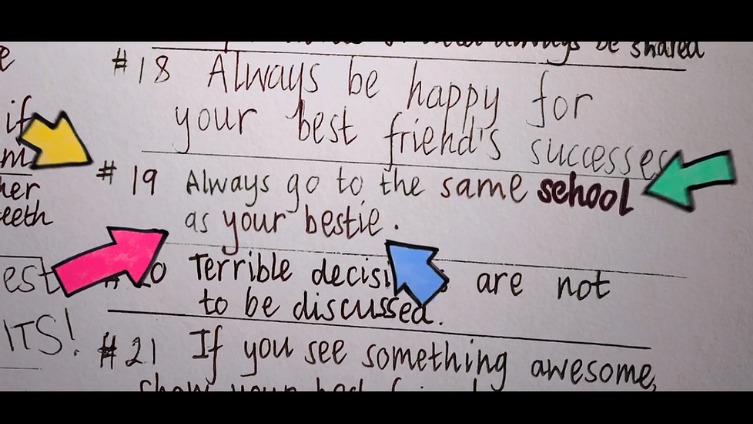 always be shared
#18 Always be happy for
your best friend's successes
#19 Always go to the same school
as your bestie.
#20 Terrible decisions are not
to be discussed.
#21 If you see something awesome,
show your best friend
if
her
teeth
ITS!